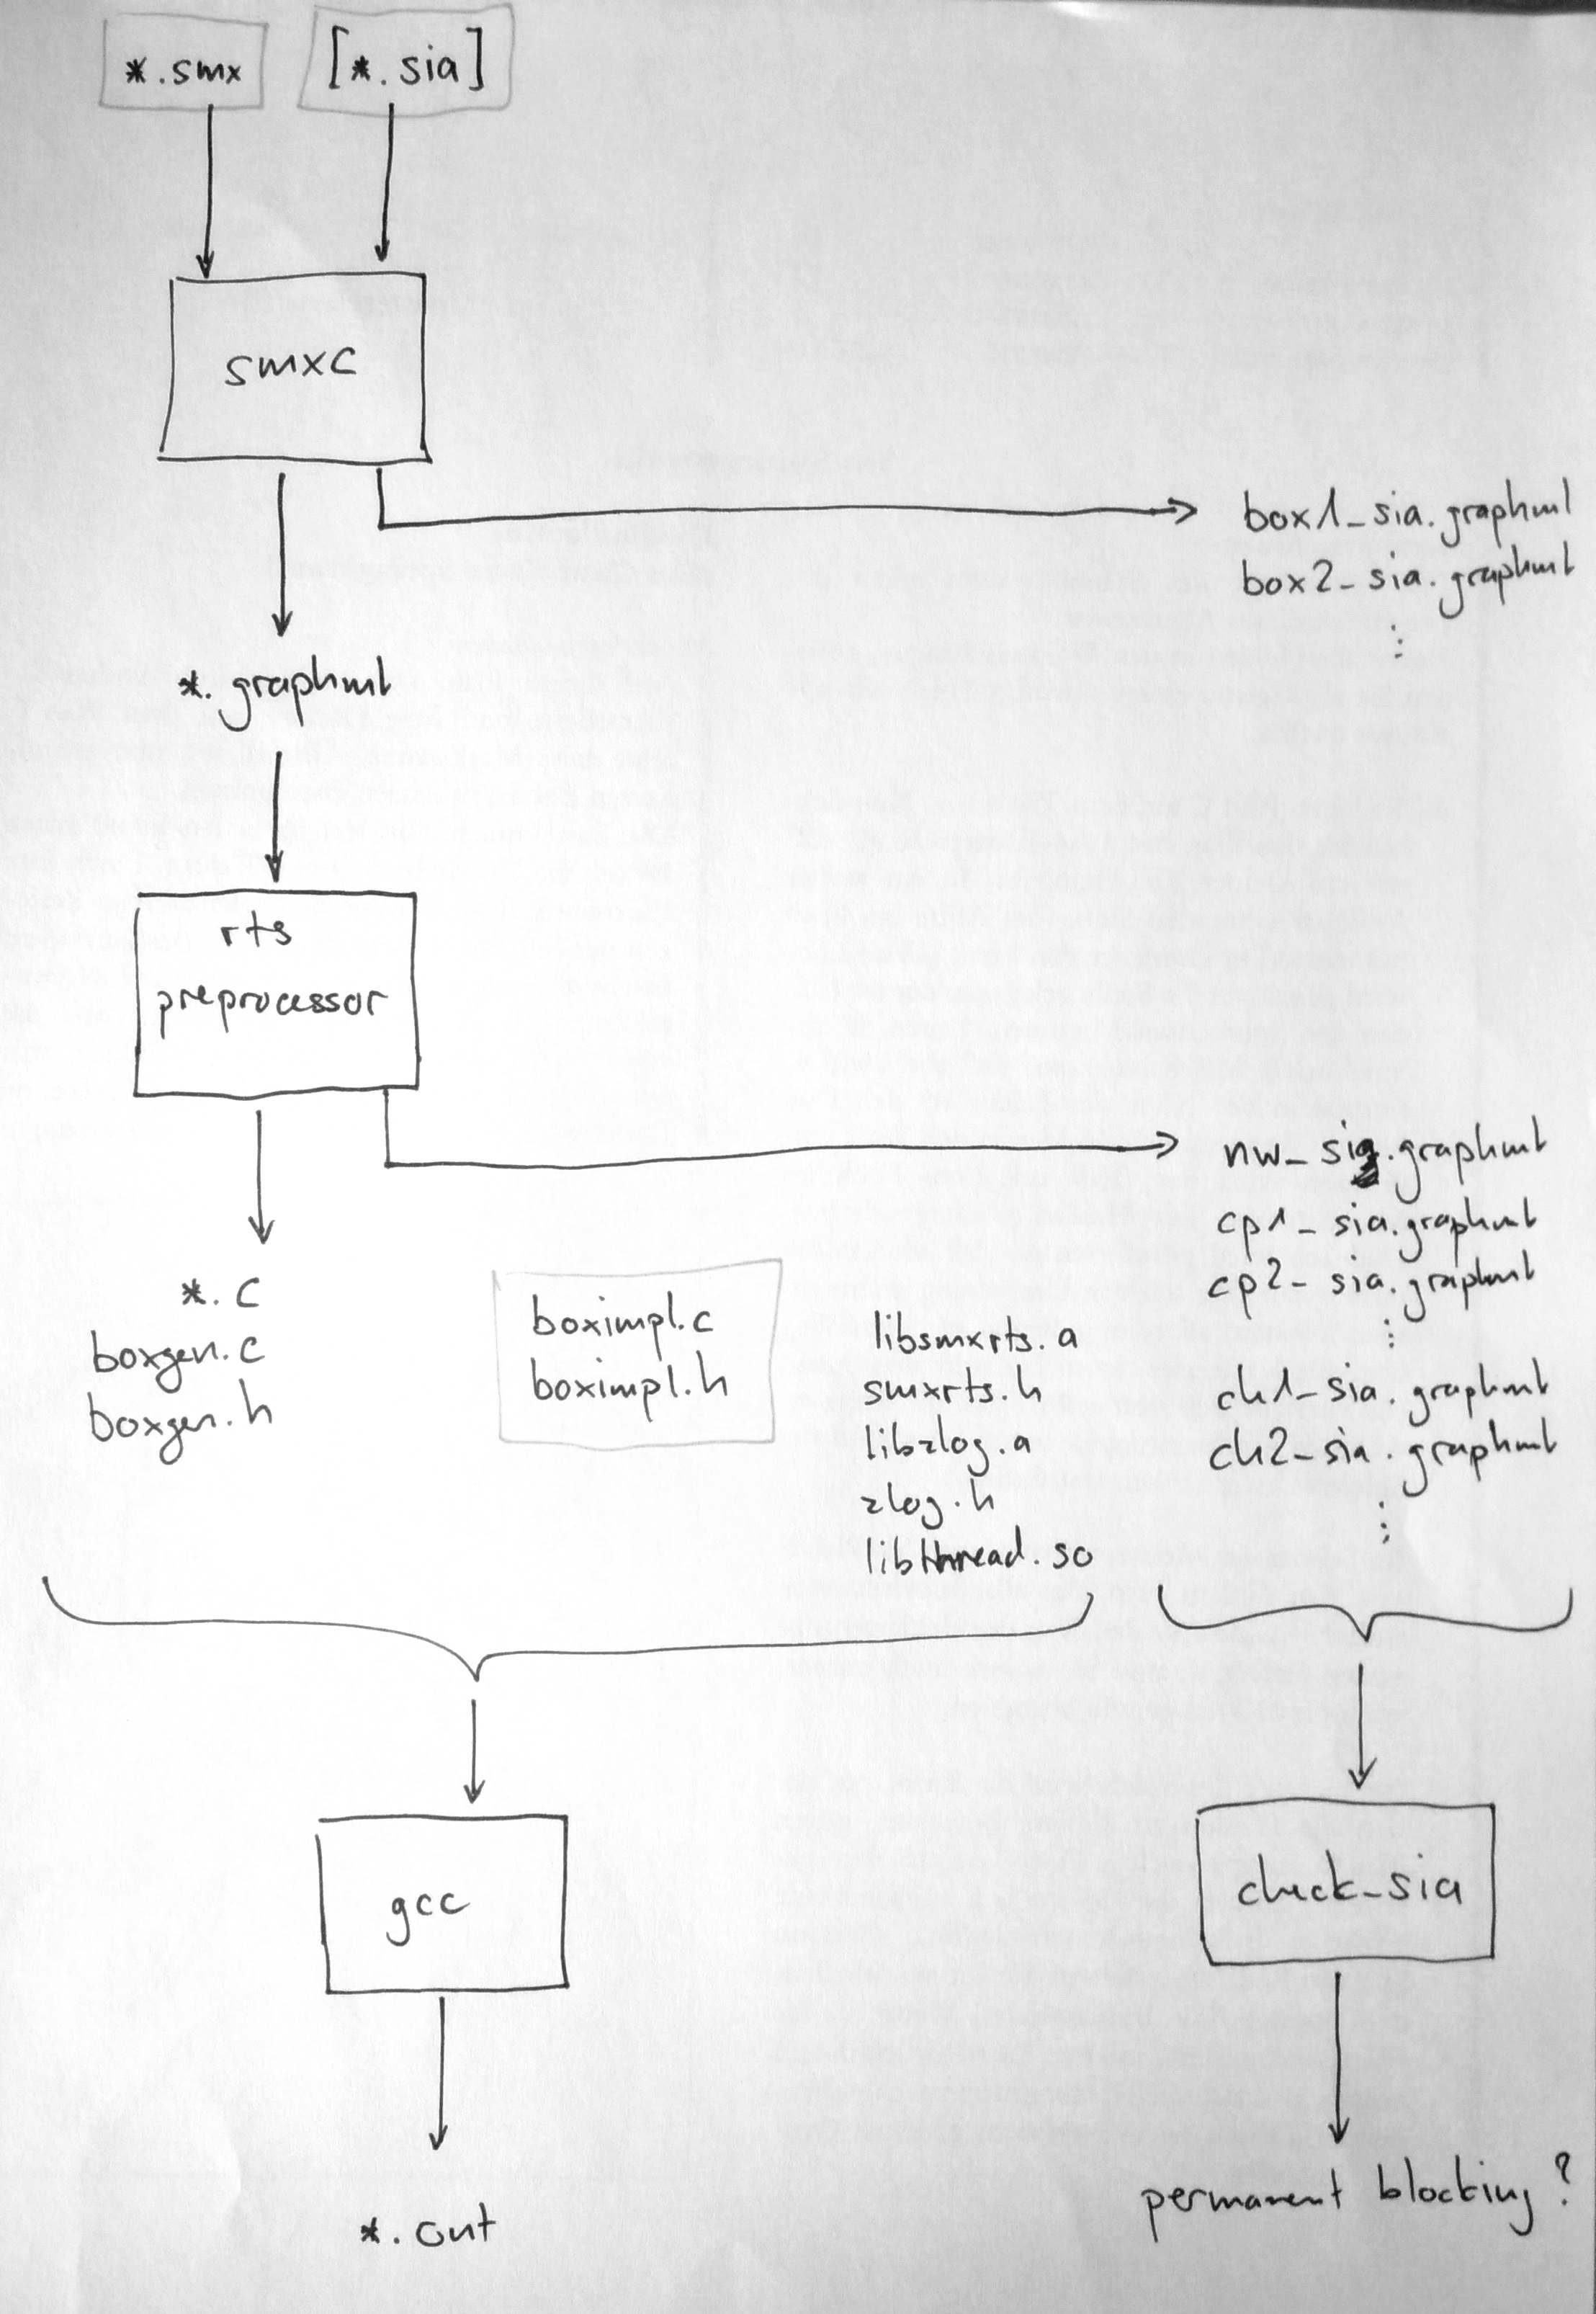 *.smx
[*.sia]
smxc
box1_sia.graphml
box2_sia.graphml
⋮
*.graphml
rts
preprocessor
nw_sia.graphml
cp1_sia.graphml
cp2_sia.graphml
⋮
ch1_sia.graphml
ch2_sia.graphml
⋮
*.c
boxgen.c
boxgen.h
boximpl.c
boximpl.h
libsmxrts.a
smxrts.h
libzlog.a
zlog.h
gcc
check_sia
*.out
permanent blocking?